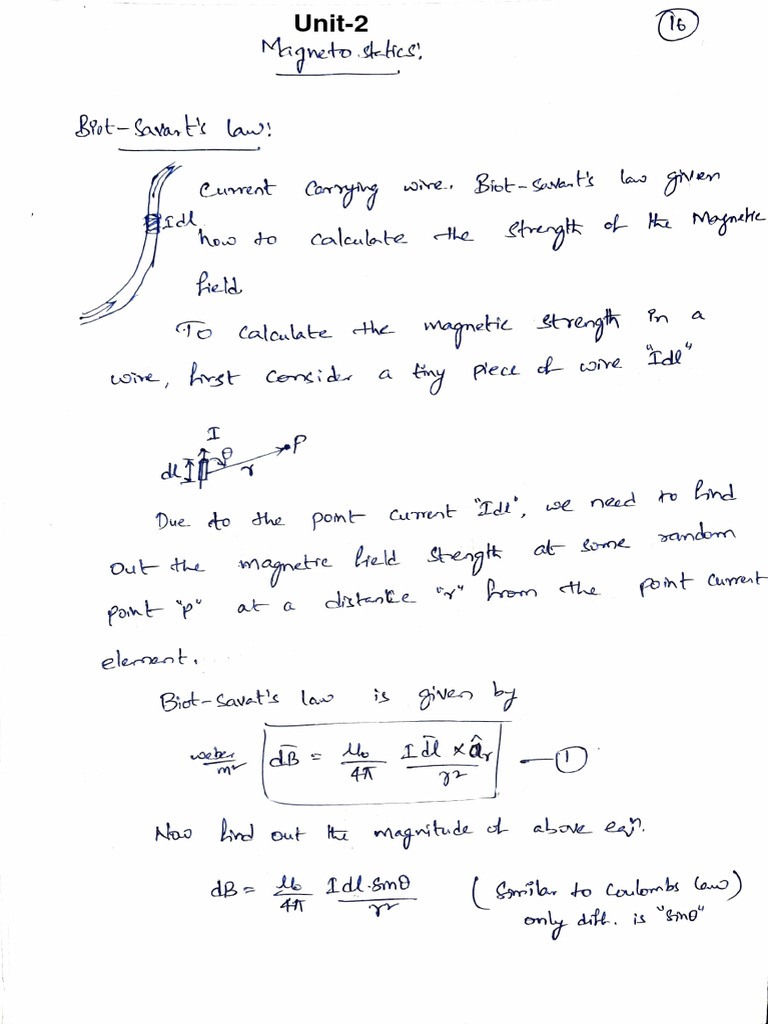 Unit-2
16
Magneto statics:
Biot-Savart's law:
Current Carrying wire. Biot-Savart's law given
Idl
how to calculate the strength of the Magnetic
field
To calculate the magnetic strength in a
wire, first consider a tiny piece of wire "Idl"
I
θ
P
dl
r
Due to the point current "Idl", we need to find
out the magnetic field strength at some random
point "p" at a distance "r" from the point current
element.
Biot-Savat's law is given by
weber/m² dB̄ = μ₀/4π I dl̄ × âr/r² — ①
Now find out the magnitude of above eqn.
dB = μ₀/4π Idl·sinθ/r² (Similar to Coulombs law)
only diff. is "sinθ"